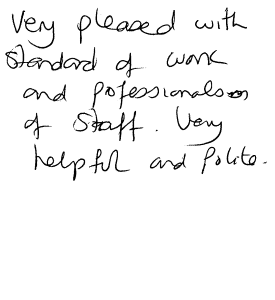 Very pleased with
standard of work
and professionalism
of Staff. Very
helpful and Polite.